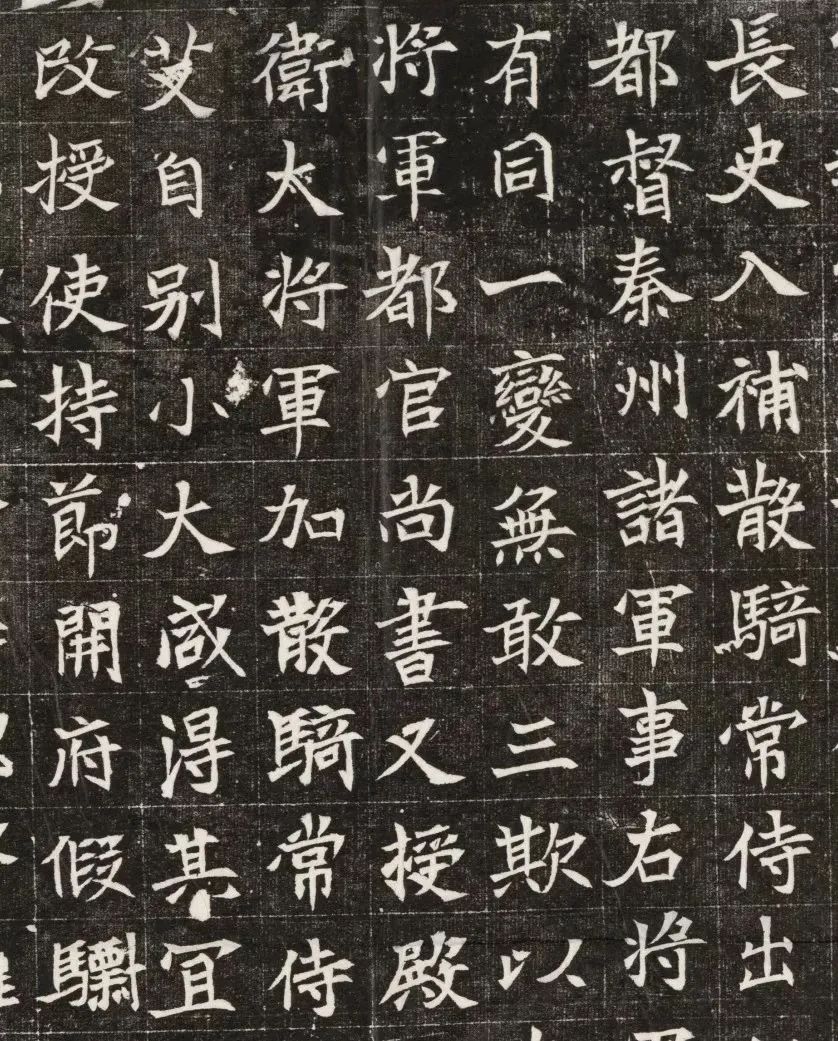 長史入補散騎常侍出
都督秦州諸軍事右將
有同一變無敢三欺以
將軍都官尚書又授殿
衛大將軍加散騎常侍
艾自別小大咸得其宜
改授使持節開府假驃